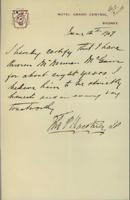 HOTEL GRAND CENTRAL,
SYDNEY
June 12th 1909
I hereby certify that I have
known Mr Norman
for about eight years I
believe him to be absolutely
honest and
trustworthy